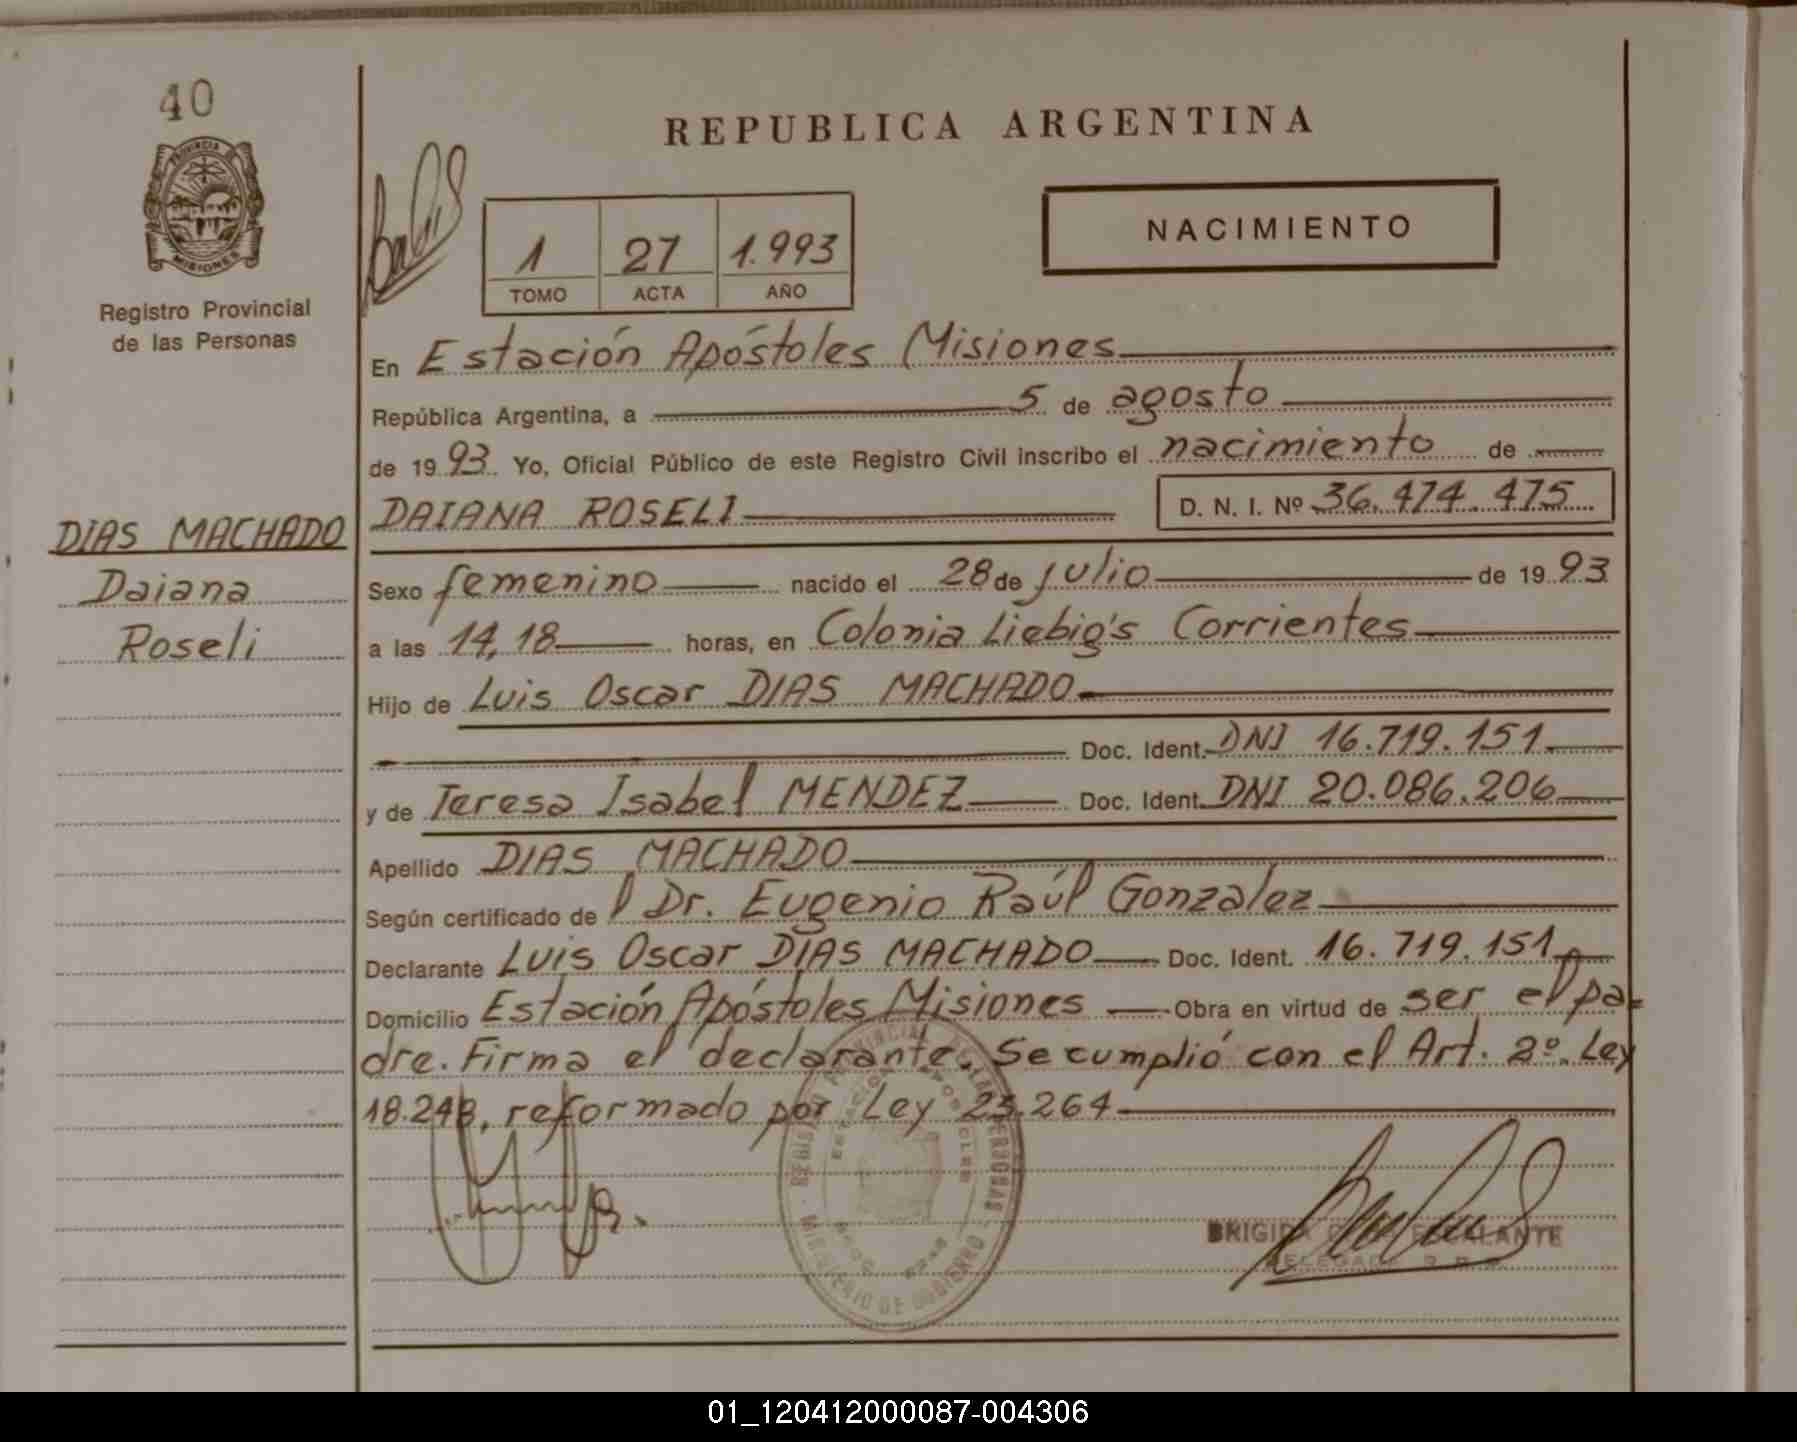 40
PROVINCIA DE
MISIONES
Registro Provincial
de las Personas
DIAS MACHADO
Daiana
Roseli
REPUBLICA ARGENTINA
NACIMIENTO
1 27 1.993
TOMO ACTA AÑO
En Estación Apóstoles Misiones
República Argentina, a 5 de agosto
de 1993 Yo, Oficial Público de este Registro Civil inscribo el nacimiento de
DAIANA ROSELI D. N. I. Nº 36.474.475
Sexo femenino nacido el 28 de julio de 1993
a las 14,18 horas, en Colonia Liebig's Corrientes
Hijo de Luis Oscar DIAS MACHADO
Doc. Ident. DNI 16.719.151
y de Teresa Isabel MENDEZ Doc. Ident. DNI 20.086.206
Apellido DIAS MACHADO
Según certificado de Dr. Eugenio Raúl Gonzalez
Declarante Luis Oscar DIAS MACHADO Doc. Ident. 16.719.151
Domicilio Estación Apóstoles Misiones Obra en virtud de ser el pa=
dre. Firma el declarante. Se cumplió con el Art. 2º. Ley
18.248, reformado por Ley 23.264
REGISTRO PROVINCIAL DE LAS PERSONAS
ESTACION APOSTOLES
MINISTERIO DE GOBIERNO
BRIGIDA ESCALANTE
DELEGADA
01_120412000087-004306